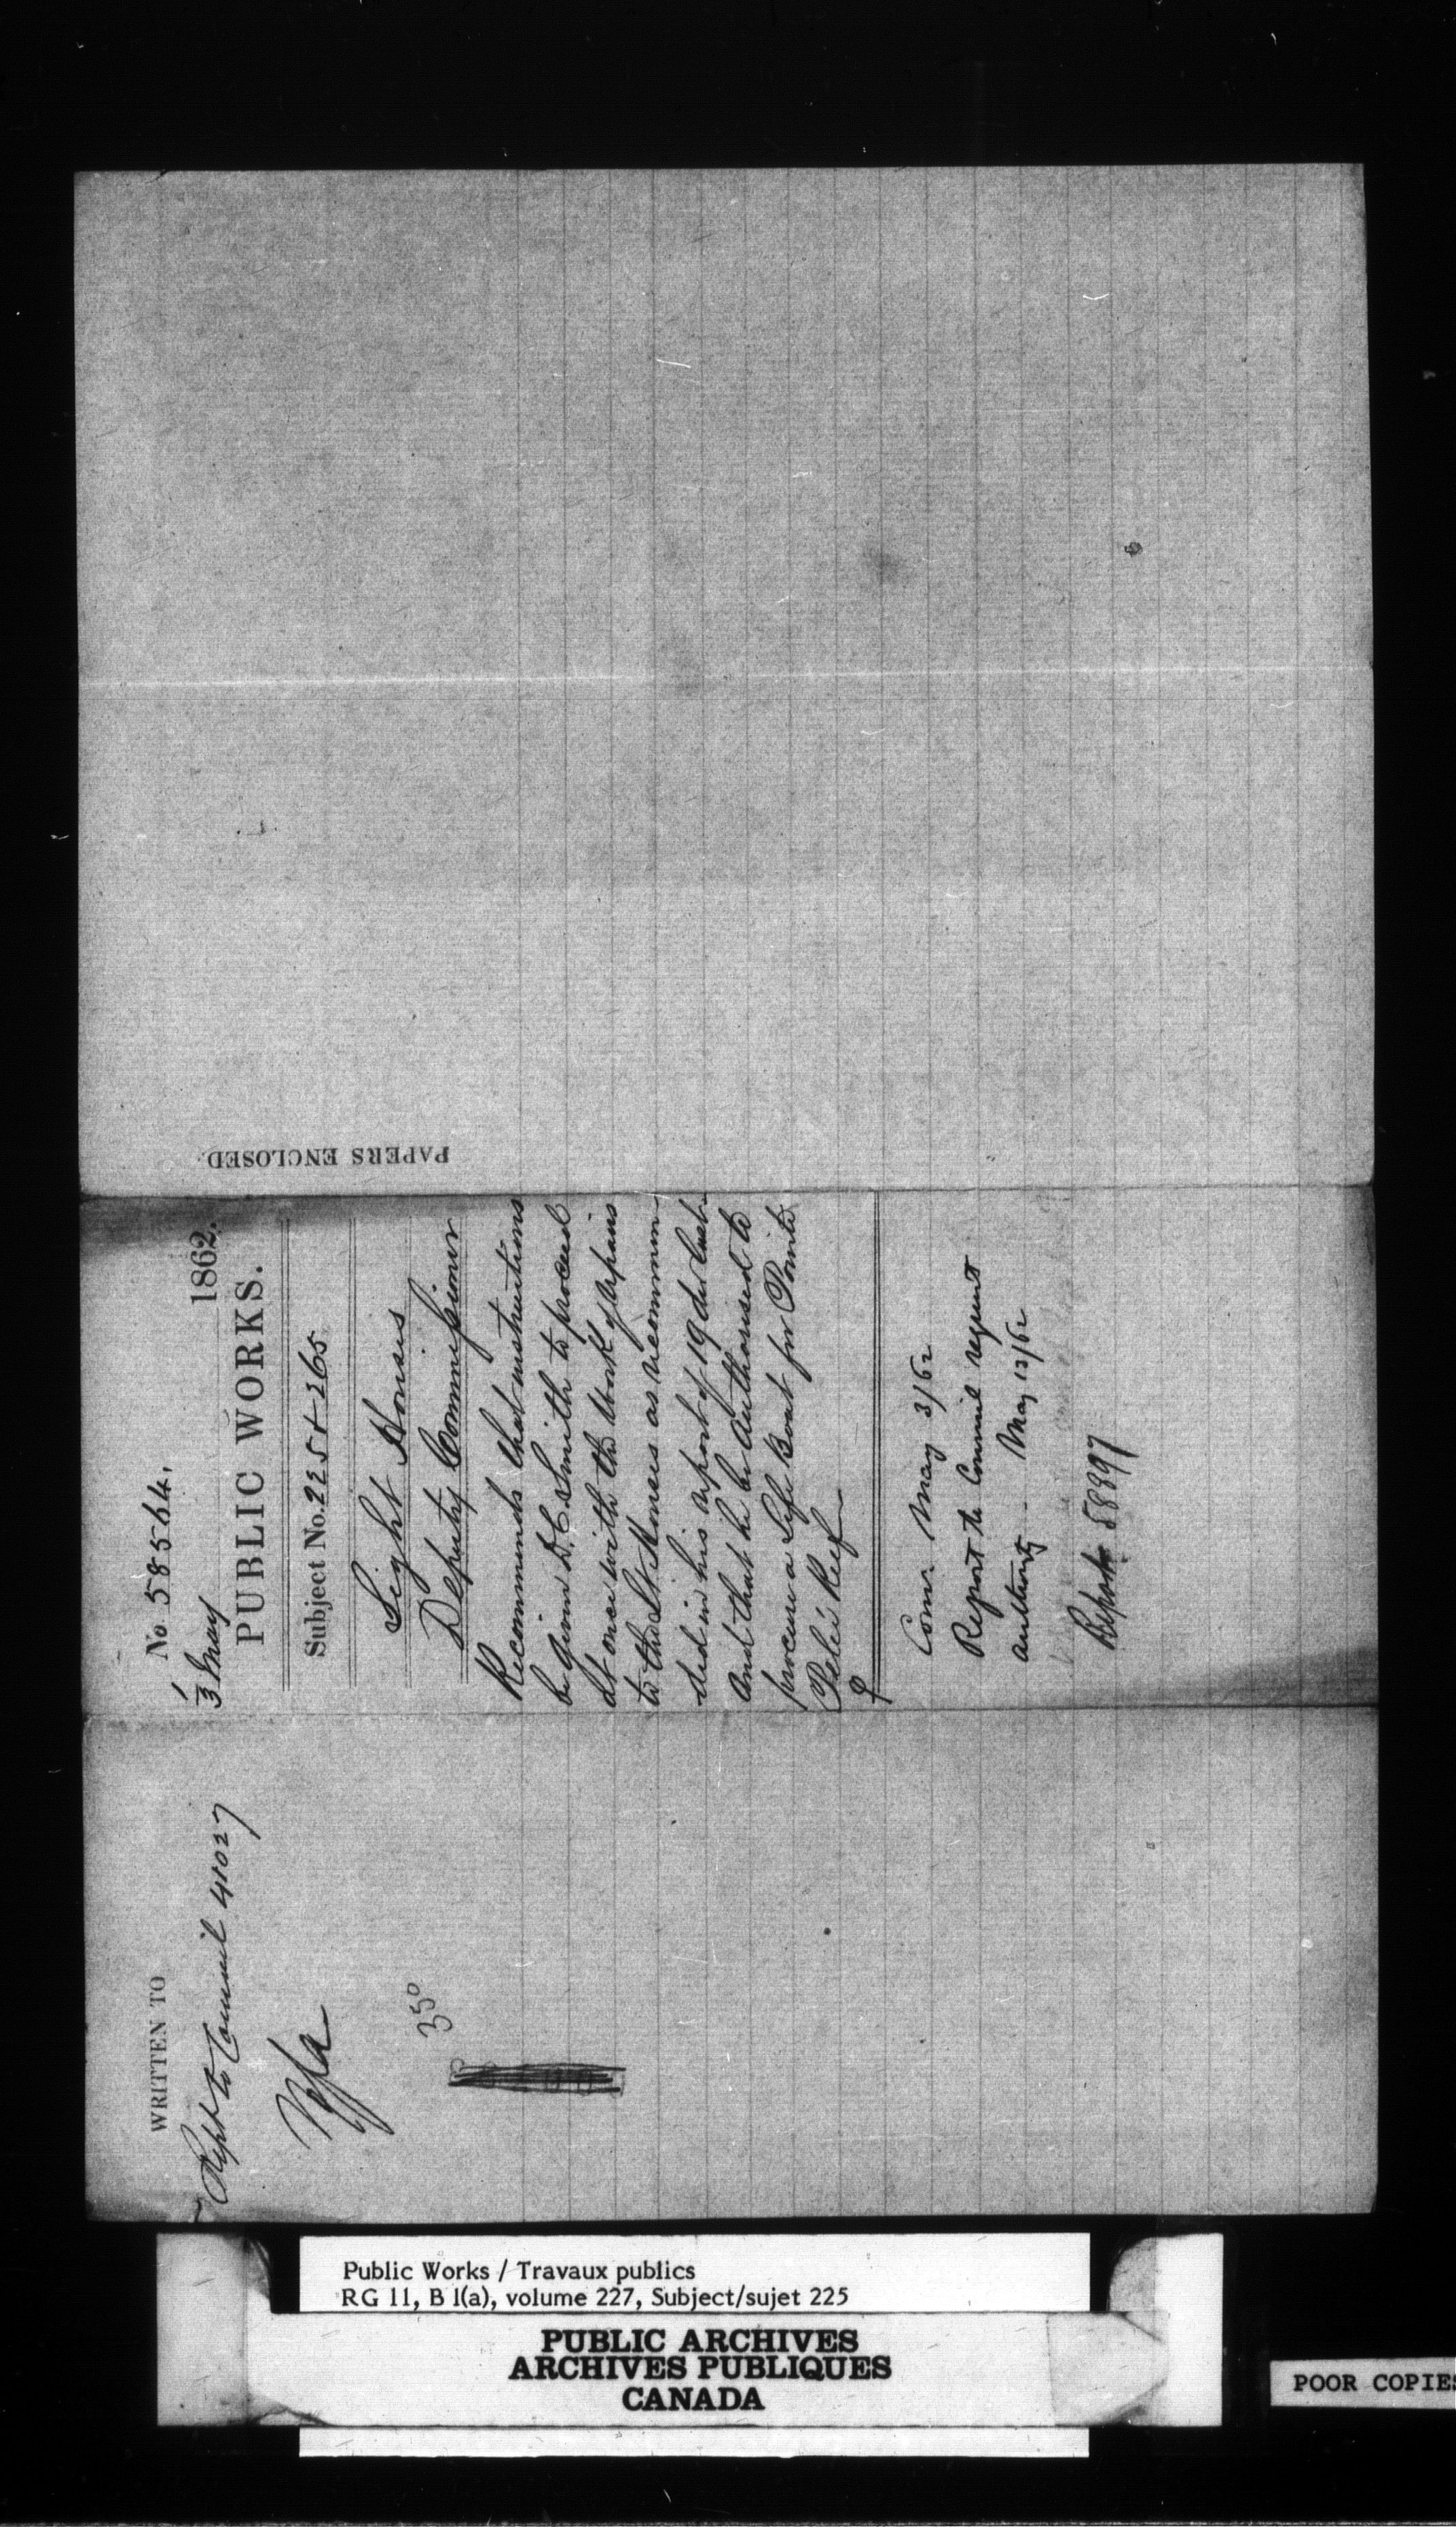 WRITTEN TO
Rept to Council 41027
350
No. 58564.
3 May 1862.
PUBLIC WORKS.
Subject No. 225 + 265
Light Houses
Deputy Commissioner
Recommends that instructions
be given D. C. Smith to proceed
at once with the Work of repairs
to the Lt Houses as recommen-
ded in his report of 19 Dec last
and that he be authorised to
procure a Life Boat for Point
Pelée Reef
Com May 3/62
Report to Council request
authority May 12/62
Report 58897
PAPERS ENCLOSED.
Public Works / Travaux publics
RG 11, B 1(a), volume 227, Subject/sujet 225
PUBLIC ARCHIVES
ARCHIVES PUBLIQUES
CANADA
POOR COPIES